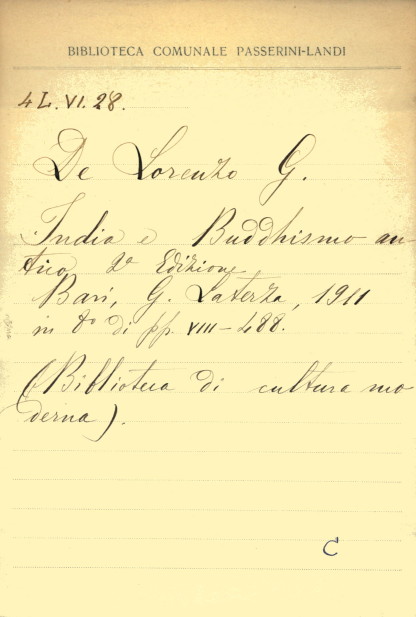 BIBLIOTECA COMUNALE PASSERINI-LANDI
4L.VI.28.
De Lorenzo G.
India e Buddhismo an-
tico 2ª Edizione
Bari, G. Laterza, 1911
in 8º di pp. VIII-488.
(Biblioteca di cultura mo
derna).
C